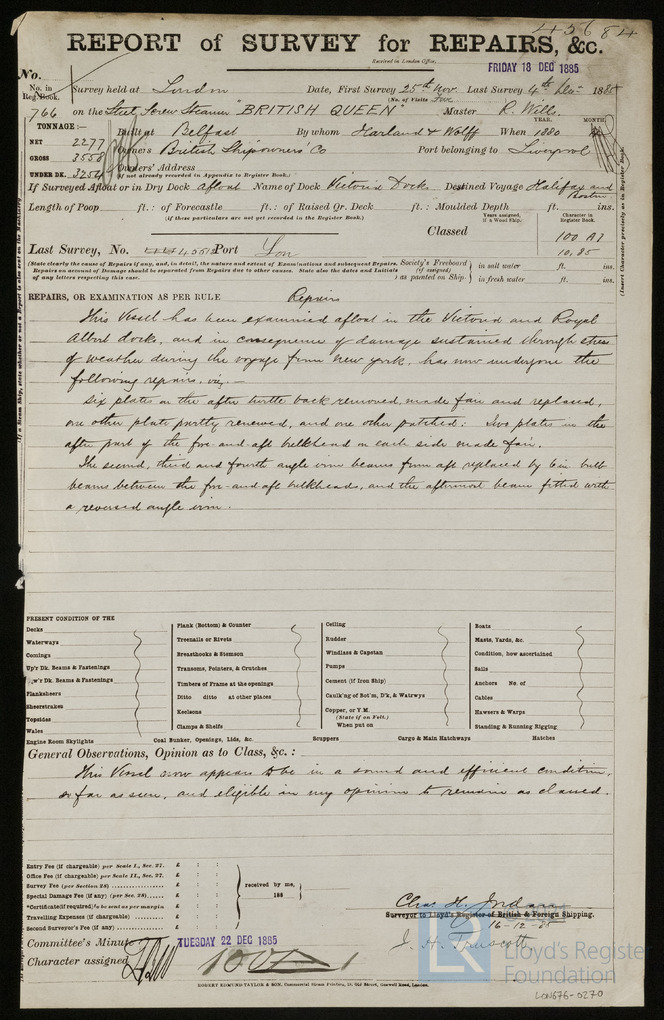 45684
REPORT of SURVEY for REPAIRS, &c.
Received in London Office,
FRIDAY 18 DEC 1885
No.
No. in Reg. Book. Survey held at London Date, First Survey 25th Nov. Last Survey 4th Dec 1885
(No. of Visits Five
766 on the Steel Screw Steamer "BRITISH QUEEN" Master R. Wills.
TONNAGE:— YEAR. MONTH.
Built at Belfast By whom Harland & Wolff When 1880
NET 2277
GROSS 3558 Owners British Shipowners Co Port belonging to Liverpool
UNDER DK. 3254 Owners' Address
(if not already recorded in Appendix to Register Book.)
If Surveyed Afloat or in Dry Dock afloat Name of Dock Victoria Docks Destined Voyage Halifax and Boston
Length of Poop ft.: of Forecastle ft.: of Raised Qr. Deck ft.: Moulded Depth ft. ins.
(if these particulars are not yet recorded in the Register Book.)
Years assigned, if a Wood Ship. Character in Register Book.
Classed 100 A1
10.85
Last Survey, No. Port Lon
(State clearly the cause of Repairs if any, and, in detail, the nature and extent of Examinations and subsequent Repairs.
Repairs on account of Damage should be separated from Repairs due to other causes. State also the dates and Initials
of any letters respecting this case.
Society's Freeboard (if assigned) as painted on Ship
in salt water ft. ins.
in fresh water ft. ins.
(Insert Character precisely as in Register Book.
REPAIRS, OR EXAMINATION AS PER RULE Repairs
This Vessel has been examined afloat in the Victoria and Royal
Albert docks, and in consequence of damage sustained through stress
of weather during the voyage from New York, has now undergone the
following repairs, viz.—
Six plates on the after turtle back removed, made fair and replaced,
one other plate partly renewed, and one other patched: Two plates in the
after part of the fore-and-aft bulkhead on each side made fair.
The second, third and fourth angle iron beams from aft replaced by 6 in. bulb
beams between the fore-and-aft bulkheads, and the aftermost beam fitted with
a reversed angle iron.
PRESENT CONDITION OF THE
Decks
Waterways
Comings
Up'r Dk. Beams & Fastenings
Low'r Dk. Beams & Fastenings
Planksheers
Sheerstrakes
Topsides
Wales
Engine Room Skylights
Plank (Bottom) & Counter
Treenails or Rivets
Breasthooks & Stemson
Transoms, Pointers, & Crutches
Timbers of Frame at the openings
Ditto ditto at other places
Keelsons
Clamps & Shelfs
Coal Bunker, Openings, Lids, &c.
Ceiling
Rudder
Windlass & Capstan
Pumps
Cement (if Iron Ship)
Caulk'ng of Bot'm, D'k, & Watrwys
Copper, or Y.M.
(State if on Felt.)
When put on
Scuppers
Cargo & Main Hatchways
Boats
Masts, Yards, &c.
Condition, how ascertained
Sails
Anchors No. of
Cables
Hawsers & Warps
Standing & Running Rigging
Hatches
General Observations, Opinion as to Class, &c.:
This Vessel now appears to be in a sound and efficient condition,
so far as seen, and eligible in my opinion to remain as classed.
Entry Fee (if chargeable) per Scale I., Sec. 27. £ : :
Office Fee (if chargeable) per Scale II., Sec. 27. £ : :
Survey Fee (per Section 28) £ : :
Special Damage Fee (if any) (per Sec. 28) £ : :
*Certificate (if required) to be sent as per margin £ : :
Travelling Expenses (if chargeable) £ : :
Second Surveyor's Fee (if any) £ : :
received by me,
188
Chas. H. Jordan
Surveyor to Lloyd's Register of British & Foreign Shipping.
16-12-85
J. H. Truscott
Committee's Minute TUESDAY 22 DEC 1885
Character assigned 100 A 1
ROBERT EDMUND TAYLOR & SON, Commercial Steam Printers, 19, Old Street, Goswell Road, London.
LR Lloyd's Register
Foundation
LON676-0270